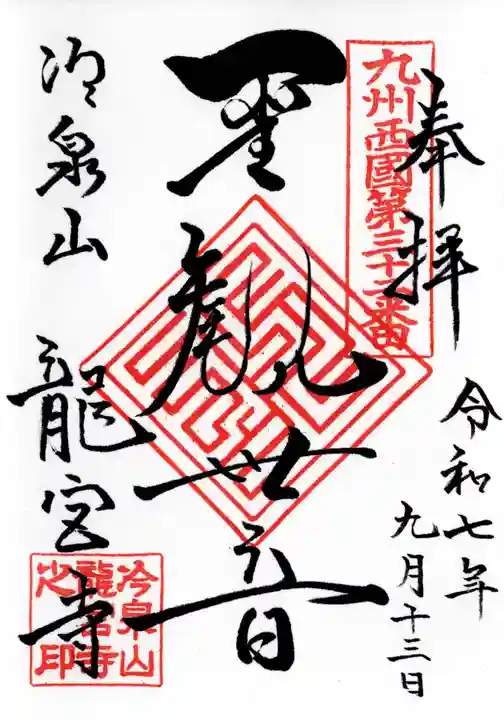 奉拝
九州西國第三十二番
令和七年
九月十三日
聖観世音
冷泉山
龍宮寺
冷泉山
龍宮寺
之印